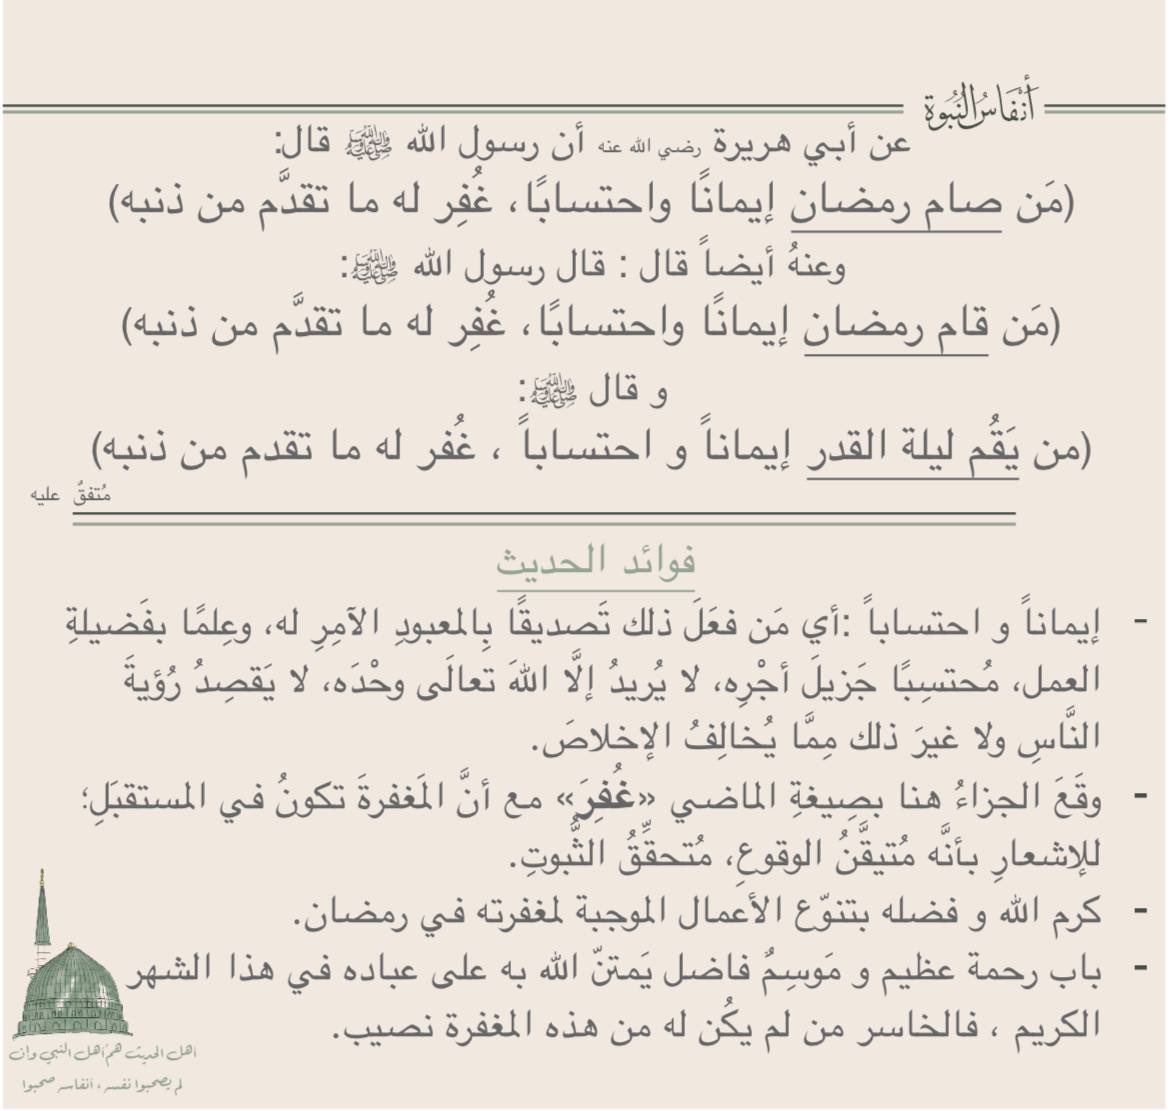 أَنْفَاسُ النُّبُوة
عن أبي هريرة رضي الله عنه أن رسول الله ﷺ قال:
(مَن صام رمضان إيمانًا واحتسابًا، غُفِر له ما تقدَّم من ذنبه)
وعنهُ أيضاً قال : قال رسول الله ﷺ:
(مَن قام رمضان إيمانًا واحتسابًا، غُفِر له ما تقدَّم من ذنبه)
و قال ﷺ:
(من يَقُم ليلة القدر إيماناً و احتساباً ، غُفر له ما تقدم من ذنبه)
مُتفقٌ عليه
فوائد الحديث
- إيماناً و احتساباً :أي مَن فعَلَ ذلك تَصديقًا بِالمعبودِ الآمِرِ له، وعِلمًا بفَضيلةِ
العمل، مُحتسِبًا جَزيلَ أجْرِه، لا يُريدُ إلَّا اللهَ تعالَى وحْدَه، لا يَقصِدُ رُؤيةَ
النَّاسِ ولا غيرَ ذلك مِمَّا يُخالِفُ الإخلاصَ.
- وقَعَ الجزاءُ هنا بصِيغةِ الماضي «غُفِرَ» مع أنَّ المَغفرةَ تكونُ في المستقبَلِ؛
للإشعارِ بأنَّه مُتيقَّنُ الوقوعِ، مُتحقِّقُ الثُّبوتِ.
- كرم الله و فضله بتنوّع الأعمال الموجبة لمغفرته في رمضان.
- باب رحمة عظيم و مَوسِمٌ فاضل يَمتنّ الله به على عباده في هذا الشهر
الكريم ، فالخاسر من لم يكُن له من هذه المغفرة نصيب.
اهل الحديث هم اهل النبي وان
لم يصحبوا نفسه ، انفاسه صحبوا